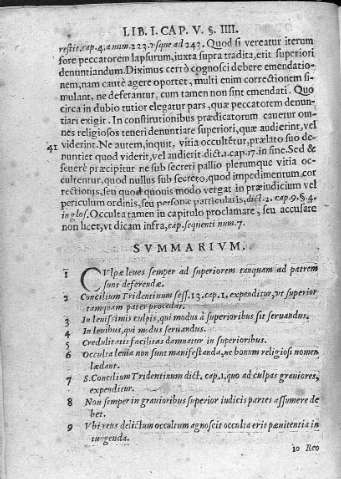 LIB. I. CAP. V. §. IIII.
restit. cap. 4. a num. 223. vsque ad 243. Quod si vereatur iterum
fore peccatorem lapsurum, iuxta supra tradita, erit superiori
denuntiandum. Diximus certò cognosci debere emendatio-
nem, nam cautè agere oportet, multi enim correctionem si-
mulant, ne deferantur, cum tamen non sint emendati. Quo
circa in dubio tutior elegatur pars, quæ peccatorem denun-
tiari exigit. In constitutionibus prædicatorum cauetur om-
nes religiosos teneri denuntiare superiori, quæ audierint, vel
viderint. Ne autem, inquit, vitia occultētur, prælato suo de-
41 nuntiet quod viderit, vel audierit. dict. 2. cap. 17. in fine. Sed &
seuerè præcipitur ne sub secreti pallio plerumque vitia oc-
cultentur, quod nullus sub secreto, quod impedimentum cor
rectionis, seu quod quouis modo vergat in præiudicium vel
periculum ordinis, seu personæ particularis, dict. 2. cap. 9. §. 4.
in glos. Occulta tamen in capitulo proclamare, seu accusare
non licet, vt dicam infra, cap. sequenti num. 7.
SVMMARIVM.
1 CVlpæ leues semper ad superiorem tanquam ad patrem
sunt deferendæ.
2 Concilium Tridentinum sess. 13. cap. 1. expenditur, vt superior
tamquam pater procedat.
3 In leuissimis culpis, qui modus à superioribus sit seruandus.
4 In leuibus, qui modus seruandus.
5 Credulitatis facilitas damnatur in superioribus.
6 Occulta leuia non sunt manifestanda, ne bonum religiosi nomen
lædant.
7 S. Concilium Tridentinum dict. cap. 1. quo ad culpas grauiores,
expenditur.
8 Non semper in grauioribus superior iudicis partes assumere de
bet.
9 Vbi reus delictum occultum agnoscit occulta erit pœnitentia in
iungenda.
10 Reo